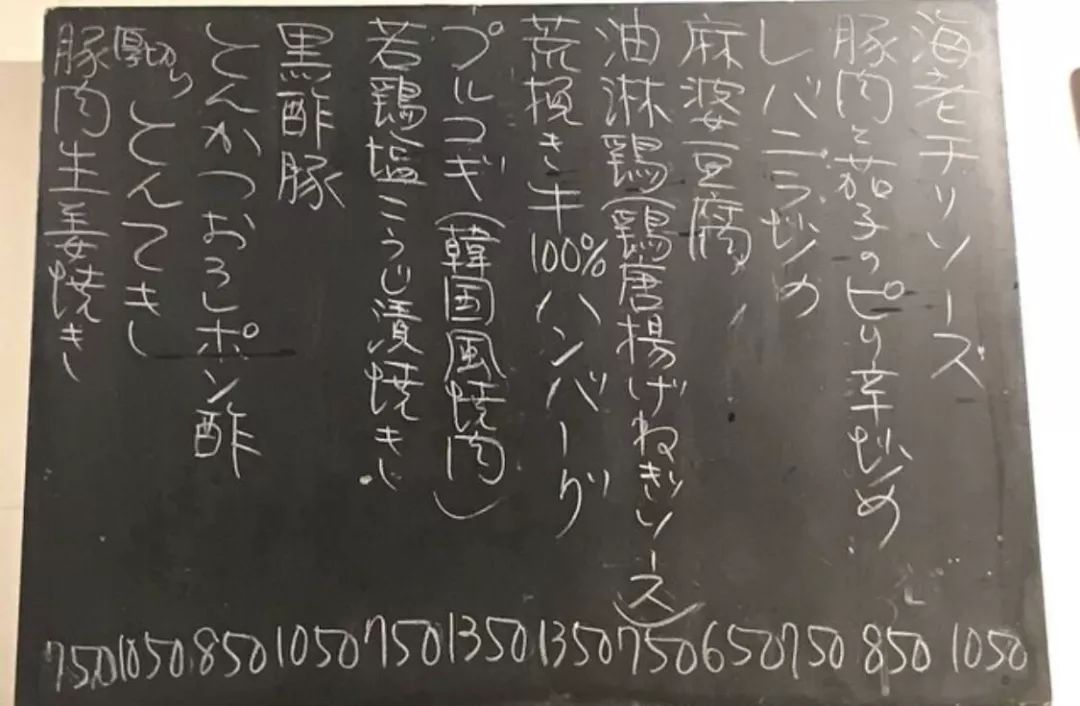 海老チリソース 1050
豚肉と茄子のピリ辛炒め 850
レバニラ炒め 750
麻婆豆腐 650
油淋鶏(鶏唐揚げねぎソース) 750
荒挽き牛100%ハンバーグ 1350
プルコギ(韓国風焼肉) 1350
若鶏塩こうじ漬焼き 750
黒酢豚 1050
とんかつおろしポン酢 850
厚切りとんてき 1050
豚肉生姜焼き 750